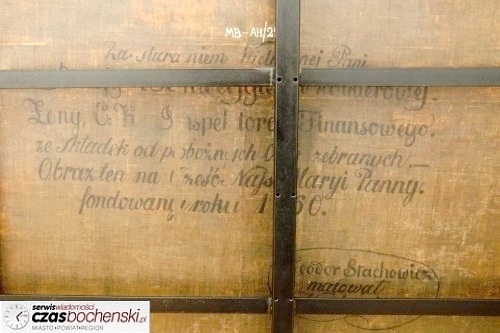 MB-AH/2
Za staraniem Wielm nej Pani
Żony, C. K. I spektora Finansowego.
ze składek od pobożnych O zebranych.—
Obraz ten na cześć Najś Maryi Panny.
fondowany roku 1 60.
Teodor Stachowicz
malował
serwis wiadomości
czasbochenski.pl
MIASTO•POWIAT•REGION